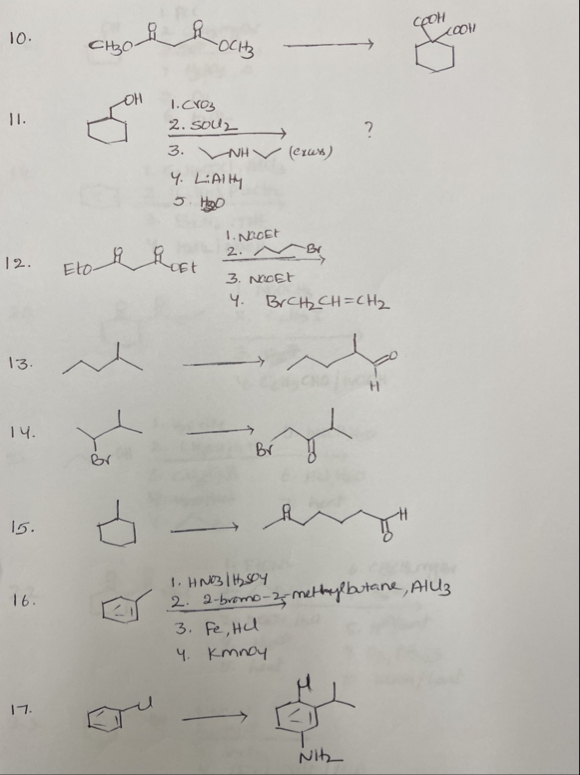 10.
CH3O O O OCH3
COOH
COOH
11.
OH
1. CrO3
2. SOCl2
3. NH (excess)
4. LiAlH4
5. H2O
?
12.
EtO O O OEt
1. NaOEt
2. Br
3. NaOEt
4. BrCH2CH=CH2
13.
O
H
14.
Br
Br
O
15.
O
H
O
16.
1. HNO3/H2SO4
2. 2-bromo-2-methylbutane, AlCl3
3. Fe, HCl
4. KmnO4
17.
Cl
Cl
NH2